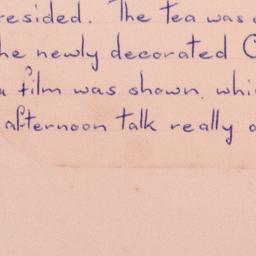 resided. The tea was
he newly decorated C
a film was shown, whi
afternoon talk really a